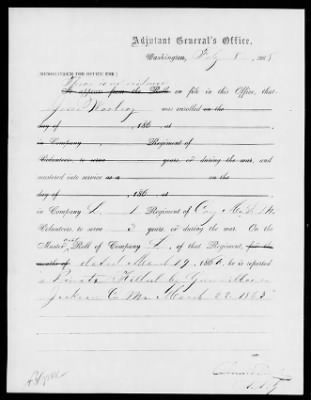 Adjutant General's Office,
Washington, July 8, 1868
[MEMORANDUM FOR OFFICE USE.]
There is no evidence
It appears from the Rolls on file in this Office, that
was enrolled on the
day of , 186 , at
in Company , Regiment of
Volunteers, to serve years, or during the war, and
mustered into service as a on the
day of , 186 , at
in Company L. 1 Regiment of Cav M. S. M.
Volunteers, to serve 3 years, or during the war. On the
Muster Roll of Company L, of that Regiment, for the
months of dated March 19, 186 , he is reported
a Private Killed by Guerrillas
Jackson Co Mo March 22 1863